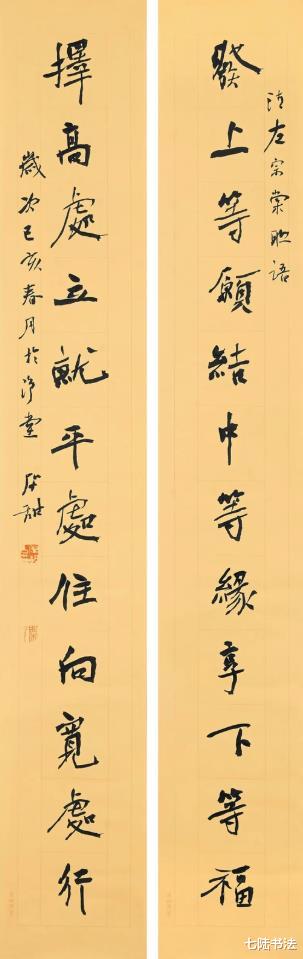 清左宗棠联语
發上等願結中等緣享下等福
擇高處立就平處住向寬處行
歲次己亥春月於淨堂
七陆书法